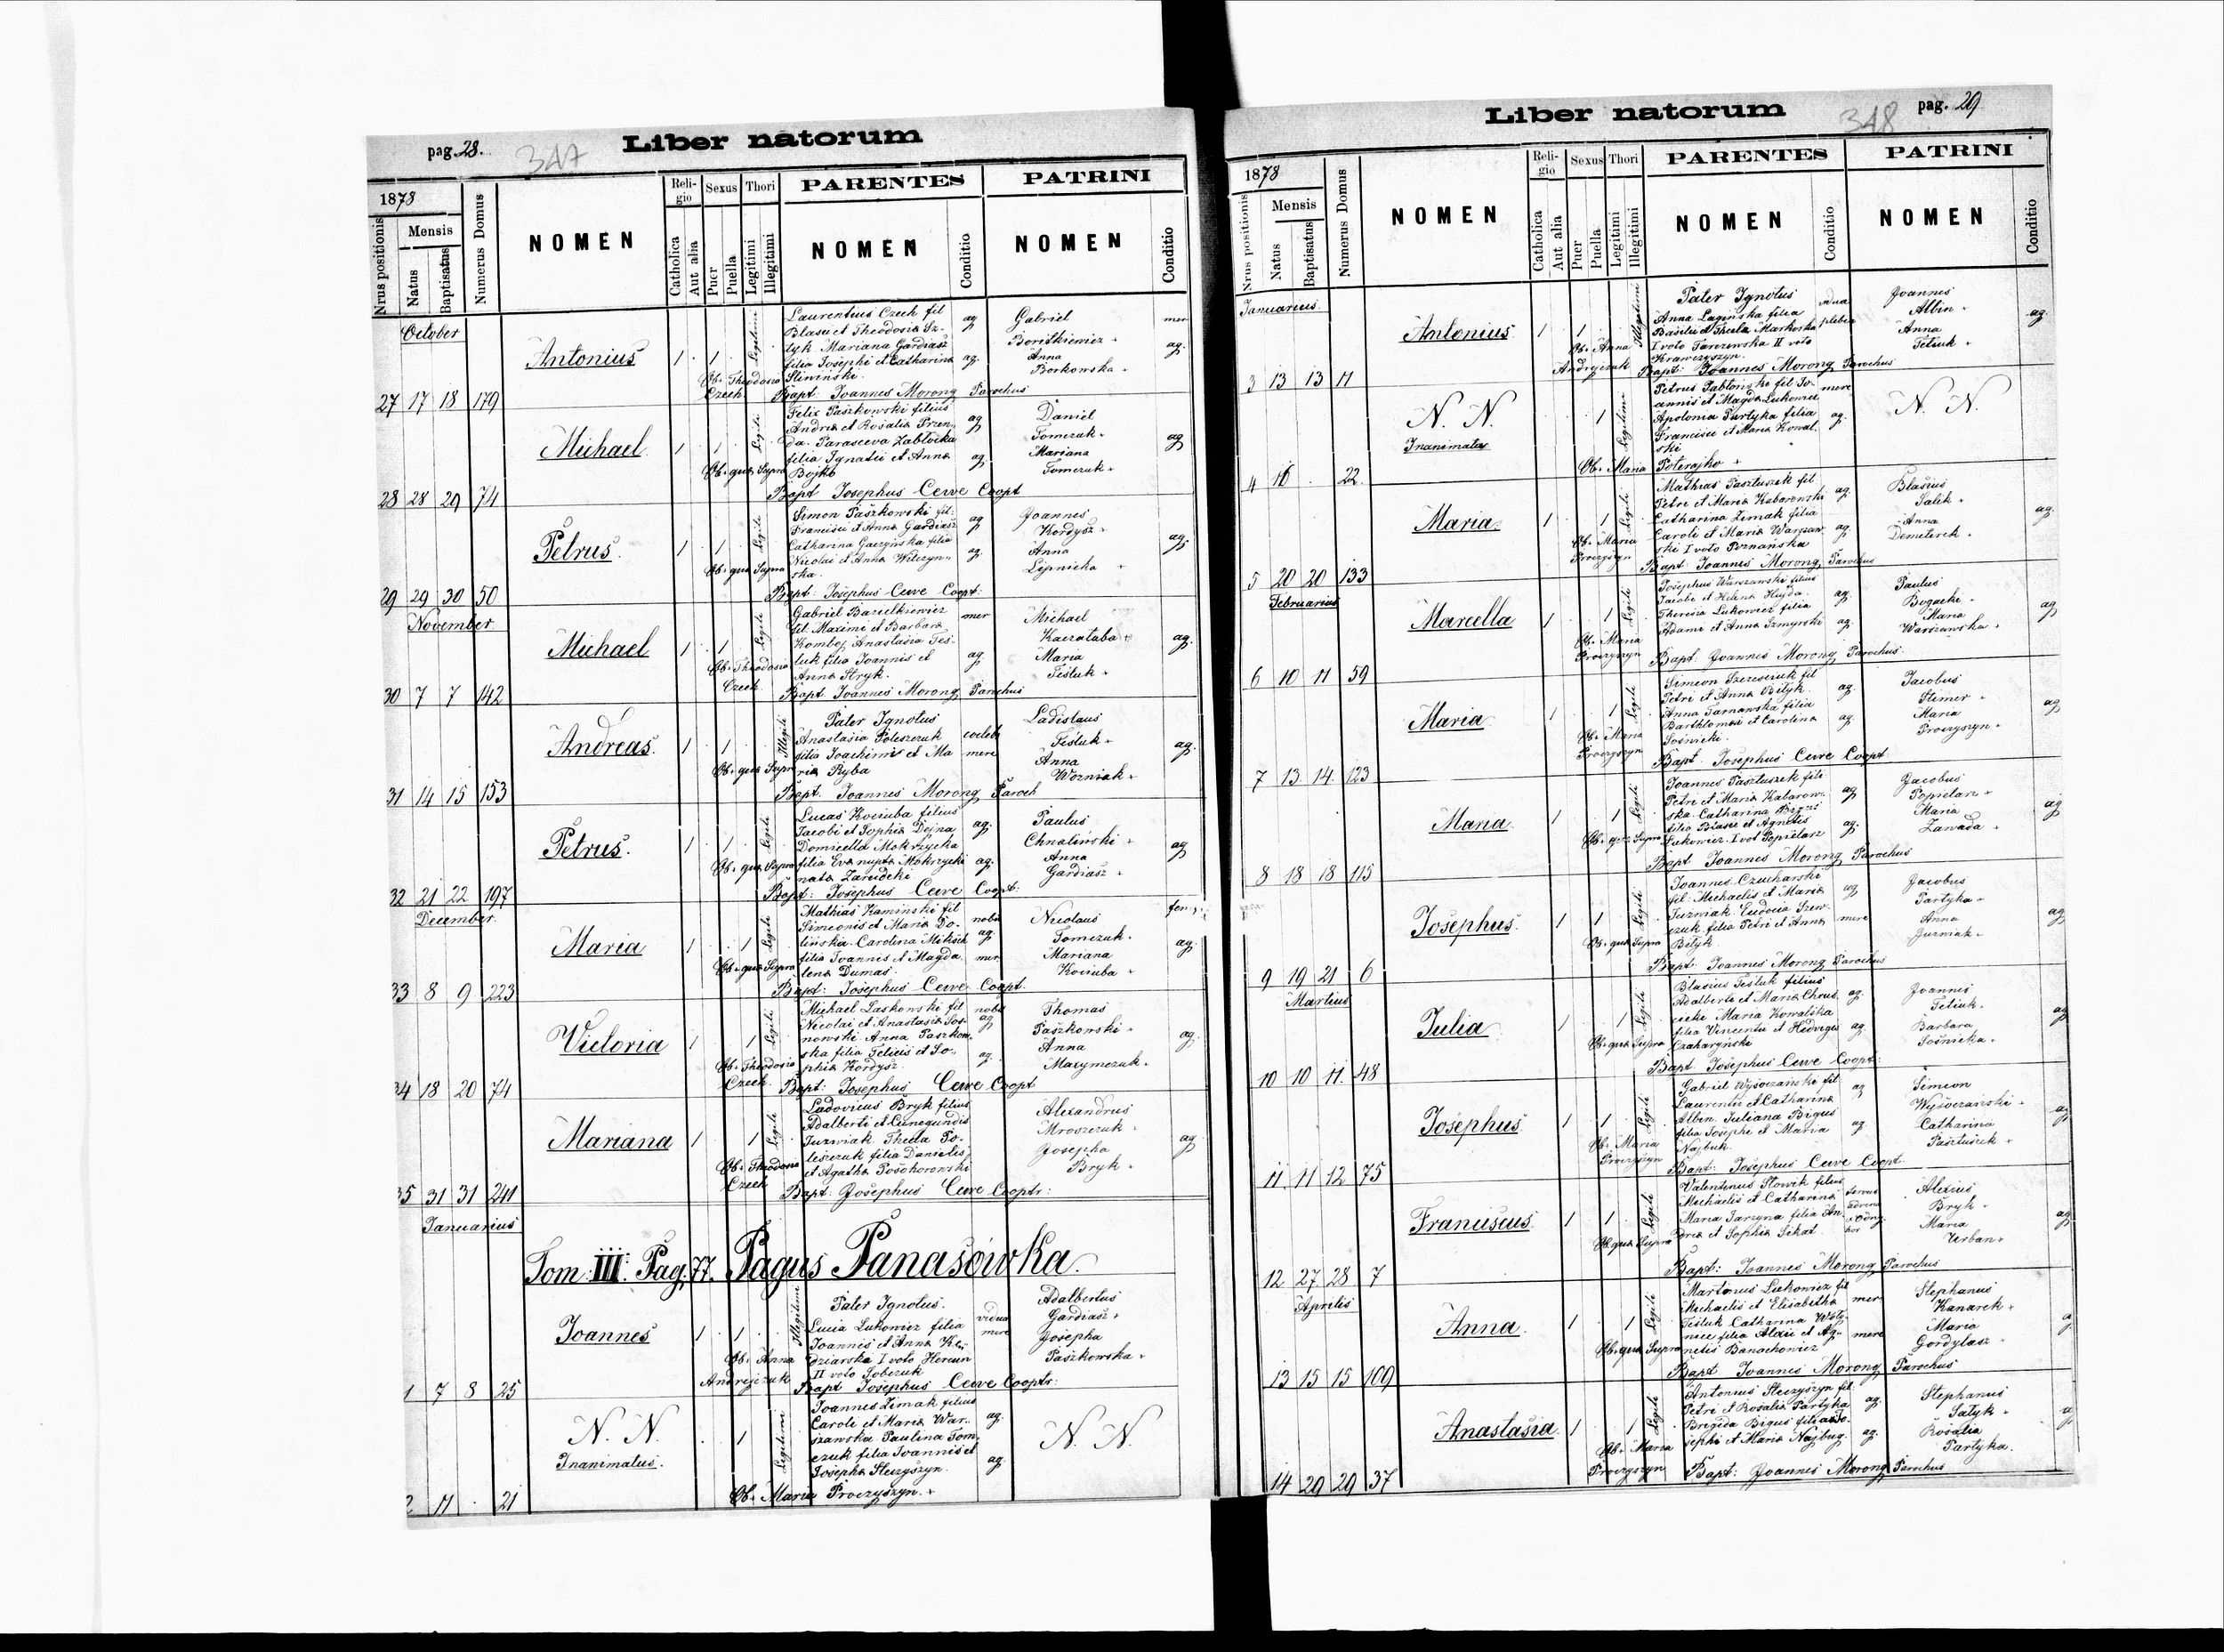 pag. 28.
347
Liber natorum
1878
Nrus positionis
Mensis
Natus
Baptisatus
Numerus Domus
NOMEN
Religio
Catholica
Aut alia
Sexus
Puer
Puella
Thori
Legitimi
Illegitimi
PARENTES
NOMEN
Conditio
PATRINI
NOMEN
Conditio
October
27 17 18 179
Antonius
1 1
Legitimi
Laurentius Czech fil
Blasii et Theodosia Sz-
tyk Mariana Gardiasz
filia Josephi et Catharina
Sliwinski.
ag
ag.
Ob. Theodosia
Czech
Bapt Joannes Morong Parochus
Gabriel
Anna
Borkowska
mer
ag.
28 28 29 74
Michael
1 1
Legiti
Felix Paszkowski filius
Andrea et Rosalia Przen-
da. Parasceva Zabłocka
filia Ignatii et Anna
Bojko
ag
ag
Ob. qua Supra
Bapt Josephus Cerve Coopt
Daniel
Tomczuk
Mariana
Tomczuk
ag
29 29 30 50
Petrus
1 1
Legiti
Simon Paszkowski fil:
Francisci et Anna Gardiasz
Catharina Gaczyńska filia
Nicolai et Anna Wilczyn-
ska.
ag
ag.
Ob. qua Supra
Bapt: Josephus Cerve Coopt:
Joannes
Kordysz
Anna
Lipnicka
ag.
November
30 7 7 142
Michael
1 1
Legiti
Gabriel Bazulkiewicz
fil. Maximi et Barbara
Komboj Anastasia Tes-
luk filia Joannis et
Anna Hryk.
mer
ag.
Ob. Theodosia
Czech
Bapt Joannes Morong Parochus
Michael
Kaczataba
Maria
Tesluk
ag.
31 14 15 153
Andreas.
1 1
Illegiti
Pater Ignotus
Anastasia Poleszczuk
filia Joachimi et Ma
ria Ryba
coelebs
mere
Ob. qua Supra
Bapt. Joannes Morong Paroch
Ladislaus
Tesluk
Anna
Wozniak
ag.
32 21 22 197
Petrus.
1 1
Legiti
Lucas Kociuba filius
Jacobi et Sophia Dojna
Domicella Mokrzycka
filia Eva nupta Mokrzycki
nata Zarudcki
ag.
ag.
Ob. qua Supra
Bapt: Josephus Cerve Coopt:
Paulus
Chmaliński
Anna
Gardiasz
ag
December
33 8 9 223
Maria
1 1
Legiti
Mathias Kaminski fil
Simeonis et Maria Do-
lińska. Carolina Miksch
filia Joannis et Magda
lena Dumas.
nobi
ag.
mer.
Ob. qua Supra
Bapt: Josephus Cerve Coopt.
Nicolaus
Tomczuk
Mariana
Kociuba
ag.
34 18 20 74
Victoria
1 1
Legiti
Michael Laskowski fil
Nicolai et Anastasia Sos-
nowski. Anna Paszkow-
ska filia Felicis et So-
phia Kordysz
nobi
ag
ag.
Ob. Theodosia
Czech.
Bapt: Josephus Cerve Coopt
Thomas
Paszkowski
Anna
Maxymczuk
ag.
35 31 31 241
Mariana
1 1
Legiti
Ludovicus Bryk filius
Adalberti et Cunegundis
Juzwiak. Thecla Po-
leszczuk filia Danielis
et Agatha Posokorowski
Ob. Theodosia
Czech
Bapt: Josephus Cerve Cooptr:
Alexandrus
Mroszczuk
Josepha
Bryk
ag.
Januarius
Tom: III. Pag. 77. Pagus Panasówka.
1 7 8 25
Joannes
1 1
Illegitimi
Pater Ignotus.
Lucia Lukowicz filia
Joannis et Anna Kę-
dziarska I voto Hercun
II voto Sobczuk
vidua
mere
Ob. Anna
Andrejczuk
Bapt Josephus Cerve Cooptr:
Adalbertus
Gardiasz
Josepha
Paszkowska
2 11 21
N. N.
Inanimatus.
1
Legitimi
Joannes Zimak filius
Caroli et Maria War-
szawska. Paulina Tom-
czuk filia Joannis et
Josepha Steczyszyn.
ag.
ag.
Ob. Maria Proczyszyn.
N. N.
Liber natorum
348
pag. 29
1878
Nrus positionis
Mensis
Natus
Baptisatus
Numerus Domus
NOMEN
Religio
Catholica
Aut alia
Sexus
Puer
Puella
Thori
Legitimi
Illegitimi
PARENTES
NOMEN
Conditio
PATRINI
NOMEN
Conditio
Januarius.
3 13 13 11
Antonius.
1 1
Illegitimi
Pater Ignotus
Anna Laginska filia
Basilii et Thecla Markoska
I voto Tarczewska II voto
Krawczyszyn.
vidua
plebea
Ob. Anna
Andryczuk
Bapt: Joannes Morong Parochus
Joannes
Albin
Anna
Tetiuk
ag.
4 16 . 22
N. N.
Inanimatus
1
Legitimi
Petrus Jabłonski fil Jo-
annis et Magda Lukowicz
Apolonia Partyka filia
Francisci et Maria Kowal-
ski
mere
ag.
Ob. Maria Poterajko
N. N.
5 20 20 133
Maria
1 1
Legiti
Mathias Pasztuszek fil
Petri et Maria Kabarowski
Catharina Zimak filia
Caroli et Maria Warszaw-
ski I voto Poznańska
ag.
ag.
Ob. Maria
Proczyszyn
Bapt: Joannes Morong Parochus
Blasius
Salik
Anna
Demiterek
ag.
Februarius
6 10 11 59
Marcella
1 1
Legiti
Josephus Warszawski filius
Jacobi et Helena Hujda.
Theresia Lukowicz filia
Adami et Anna Szmyrski
ag.
ag.
Ob. Maria
Proczyszyn
Bapt: Joannes Morong Parochus:
Paulus
Bogacki
Maria
Warszawska
ag
7 13 14 123
Maria
1 1
Legiti
Simeon Szewczuk fil
Petri et Anna Bityk.
Anna Tarnawska filia
Barthlomei et Carolina
Sosnicki.
ag.
ag.
Ob. Maria
Proczyszyn
Bapt. Josephus Cerve Coopt
Jacobus
Slimer
Maria
Proczyszyn
ag
8 18 18 115
Maria
1 1
Legiti
Joannes Pasztuszek fili
Petri et Maria Kabarow-
ska. Catharina Bigus
filia Blasii et Agnetis
Lukowicz. I vot Popielarz
ag
ag.
Ob. qua Supra
Bapt Joannes Morong Parochus
Jacobus
Popielarz
Maria
Zawada
ag
9 19 21 6
Josephus.
1 1
Legiti
Joannes Czucharski
fil. Michaelis et Maria
Juzwiak. Eudocia Szew-
czuk filia Petri et Anna
Bityk
ag
mere
Ob. qua Supra
Bapt: Joannes Morong Parochus
Jacobus
Partyka
Anna
Juzwiak
ag
Martius
10 10 11 48
Julia
1 1
Legiti
Blasius Tesluk filius
Adalberti et Maria Chrus
cicki Maria Kowalska
filia Vincentii et Hedviges
Czakaryński
ag.
ag.
Ob. qua Supra
Bapt Josephus Cerve Coopt:
Joannes
Tetiuk
Barbara
Sosnicka
ag
11 11 12 75
Josephus.
1 1
Legiti
Gabriel Wysoczański fil
Laurentii et Catharina
Albin. Juliana Bigus
filia Josephi et Maria
Najbuk.
ag
ag
Ob. Maria
Proczyszyn
Bapt: Josephus Cerve Coopt.
Simeon
Wysoczański
Catharina
Pasztuszek
ag
12 27 28 7
Franciscus.
1 1
Legiti
Valentinus Słowik filius
Michaelis et Catharina
Maria Jarzyna filia An-
drea et Sophia Sikat
servus
Ob. qua Supra
Bapt: Joannes Morong Parochus
Alexius
Bryk
Maria
Urban
ag
Aprilis
13 15 15 109
Anna.
1 1
Legiti
Martinus Lukowicz fil
Michaelis et Elisabetha
Tesluk Catharina Woty-
nice filia Alexii et Ag-
netis Banachowicz
mere
mere
Ob. qua Supra
Bapt Joannes Morong Parochus
Stephanus
Kanarek
Maria
Gordylasz
14 29 29 37
Anastasia.
1 1
Legiti
Antonius Steczyszyn fil.
Petri et Rosalia Partyka
Brigida Bigus filia Jo-
sephi et Maria Najbug.
ag.
ag.
Ob. Maria
Proczyszyn
Bapt: Joannes Morong Parochus
Stephanus
Satyk
Rosalia
Partyka.